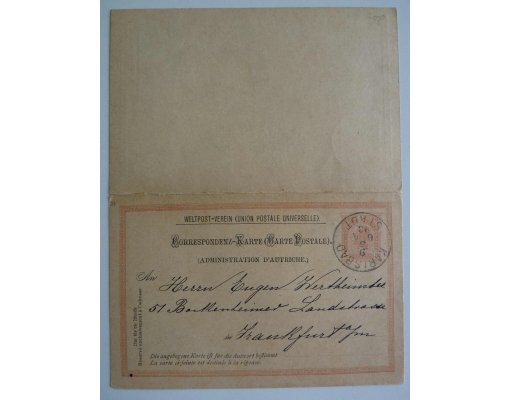 WELTPOST-VEREIN (UNION POSTALE UNIVERSELLE).
CORRESPONDENZ-KARTE (CARTE POSTALE).
(ADMINISTRATION D'AUTRICHE.)
KARLSBAD
STADT
An Herrn Eugen Wertheimber
51 Bockenheimer Landstrasse
in Frankfurt a/m
Die angebogene Karte ist für die Antwort bestimmt
La carte ci-jointe est destinée à la réponse.
Nur für die Adresse
Réservé exclusivement à l'adresse